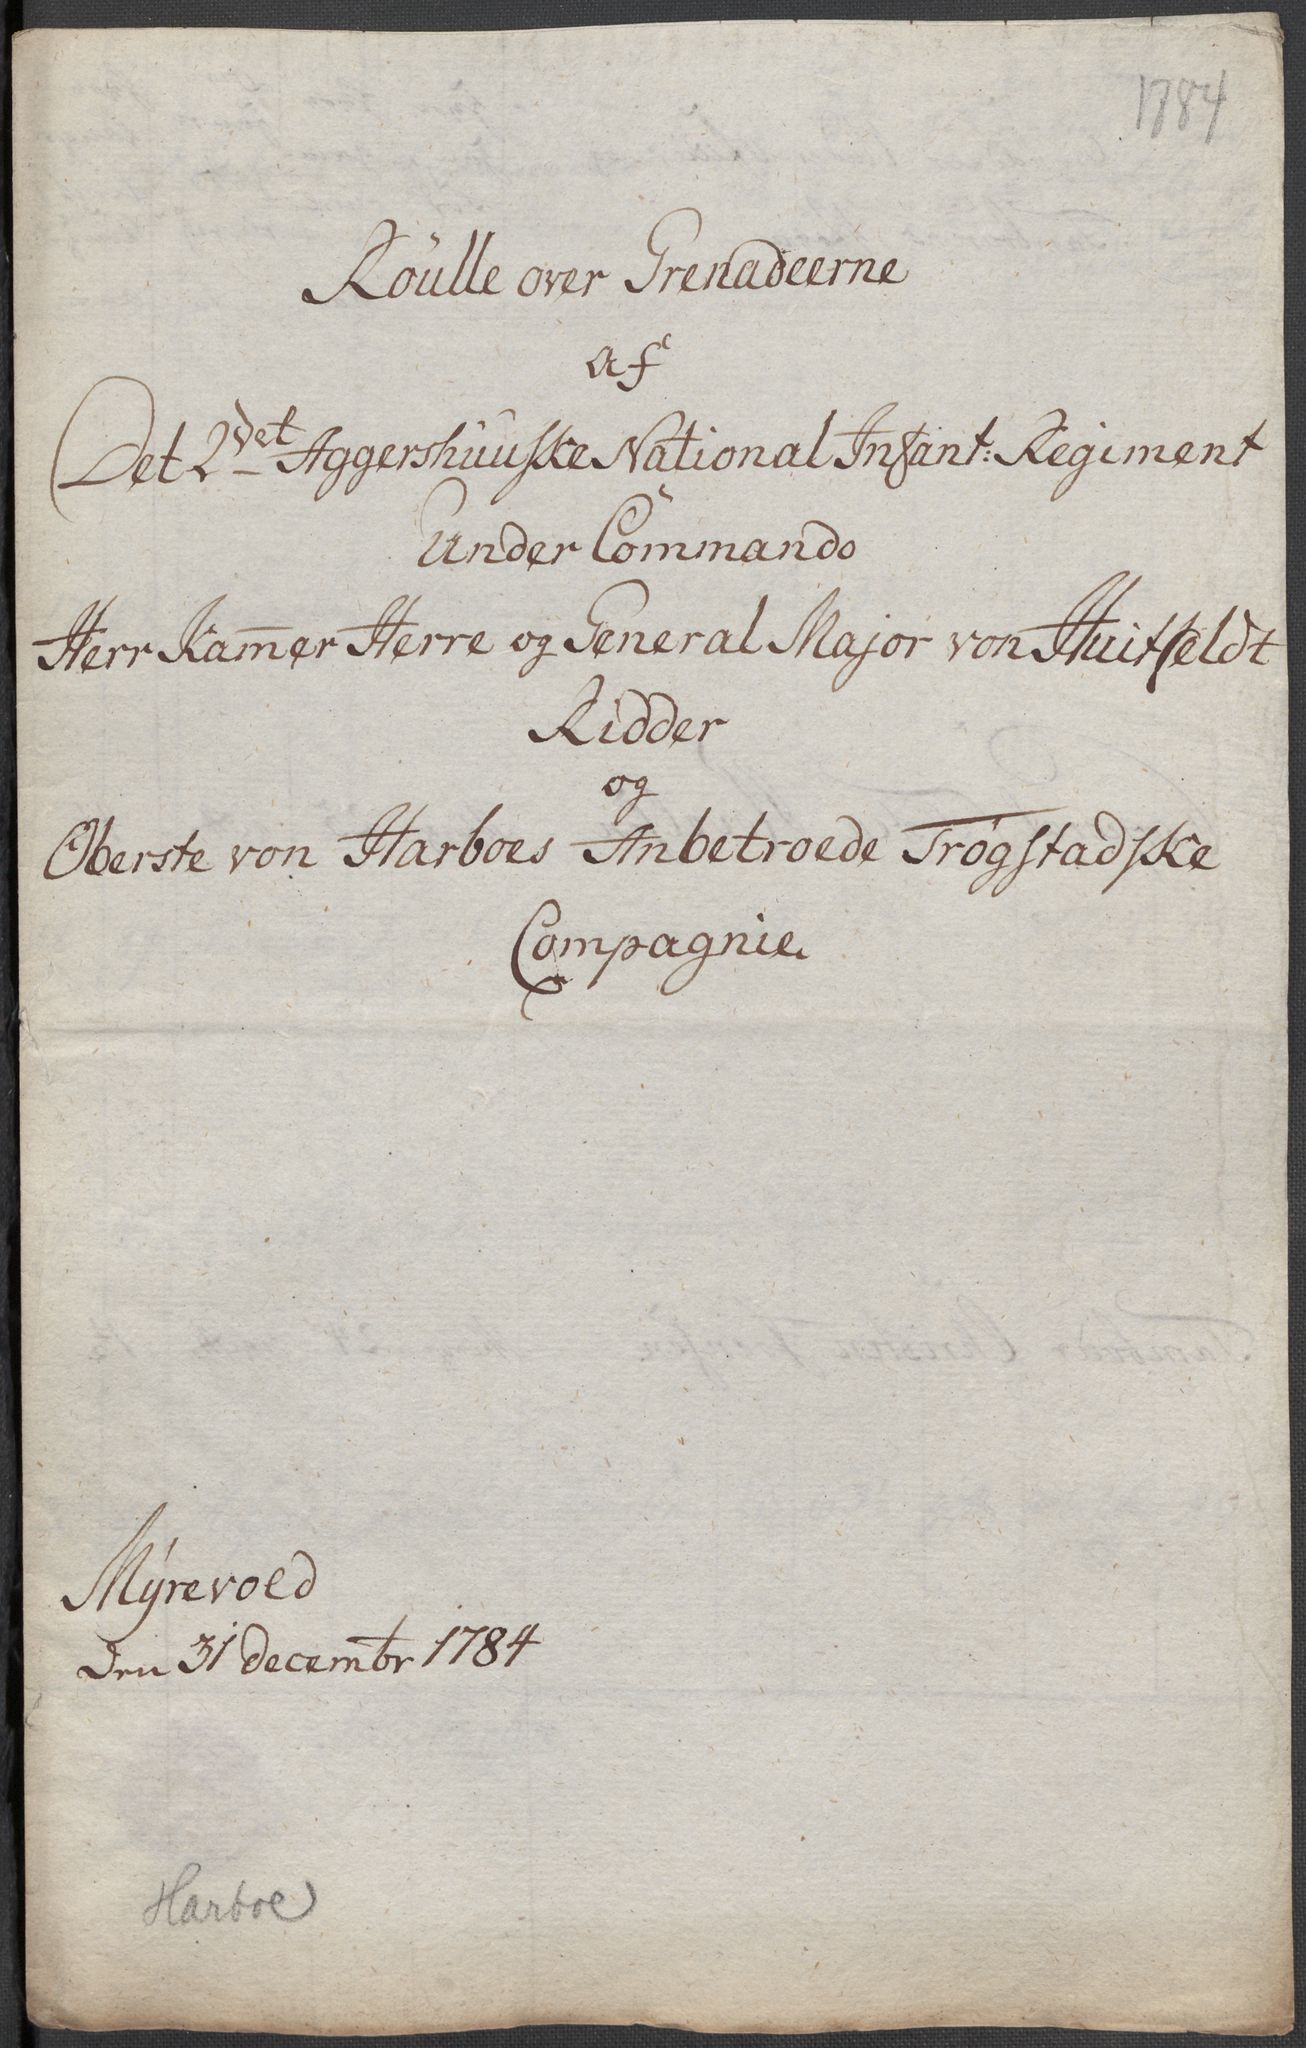 1784
Roulle over Grenadeerne
af
Det 2det Aggershuuske National Infant: Regiment
Under Commando
Herr Kam̄er Herre og General Major von Huitfeldt
Ridder
og
Oberste von Harboes Anbetroede Trøgstadske
Compagnie.
Mÿrevold
den 31 decembr 1784
Harboe